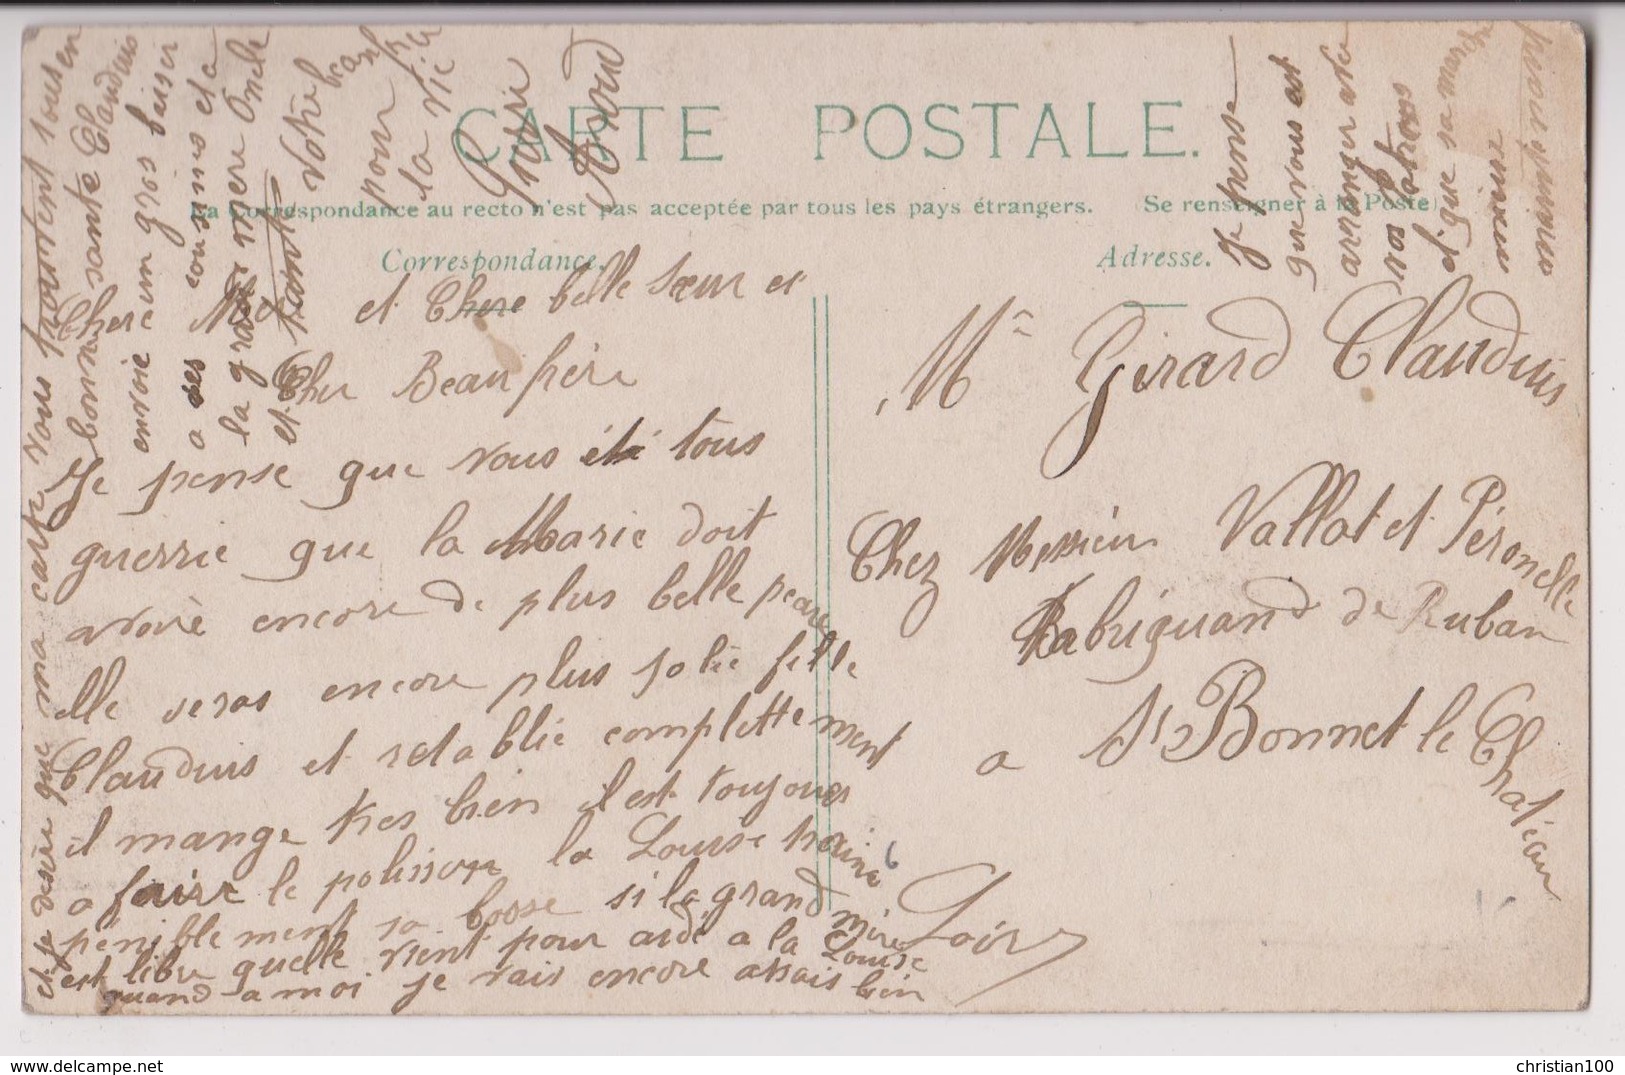 CARTE POSTALE.
La Correspondance au recto n'est pas acceptée par tous les pays étrangers. (Se renseigner à la Poste)
Correspondance.
Adresse.
Chere Mer et Chere belle sœur et
Cher Beau frère
Je pense que vous été tous
guerrie que la Marie doit
avoire encore de plus belle peau
elle seras encore plus jolie fille
Claudius et retablie complettement
il mange tres bien il est toujours
a faire le polisson la Louise traine
péniblement sa bosse si la grand mère
est libre quelle vient pour aidé a la Louise
quand a moi je vais encore assais bien
et je désire que ma carte vous trouvent tous en
bonne santé Claudius
envoie un gros baiser
a ses cousins et a
la grand mere Oncle
et tante
Votre beau frère
pour la vie
Aroud
Je pense
que vous est
arranger avec
vos patrons
et que sa marche
mieux
Mr Girard Claudius
Chez Messieur Vallat et Péronelle
Fabriquand de Ruban
a St Bonnet le Chateau
Loire
www.delcampe.net
christian100